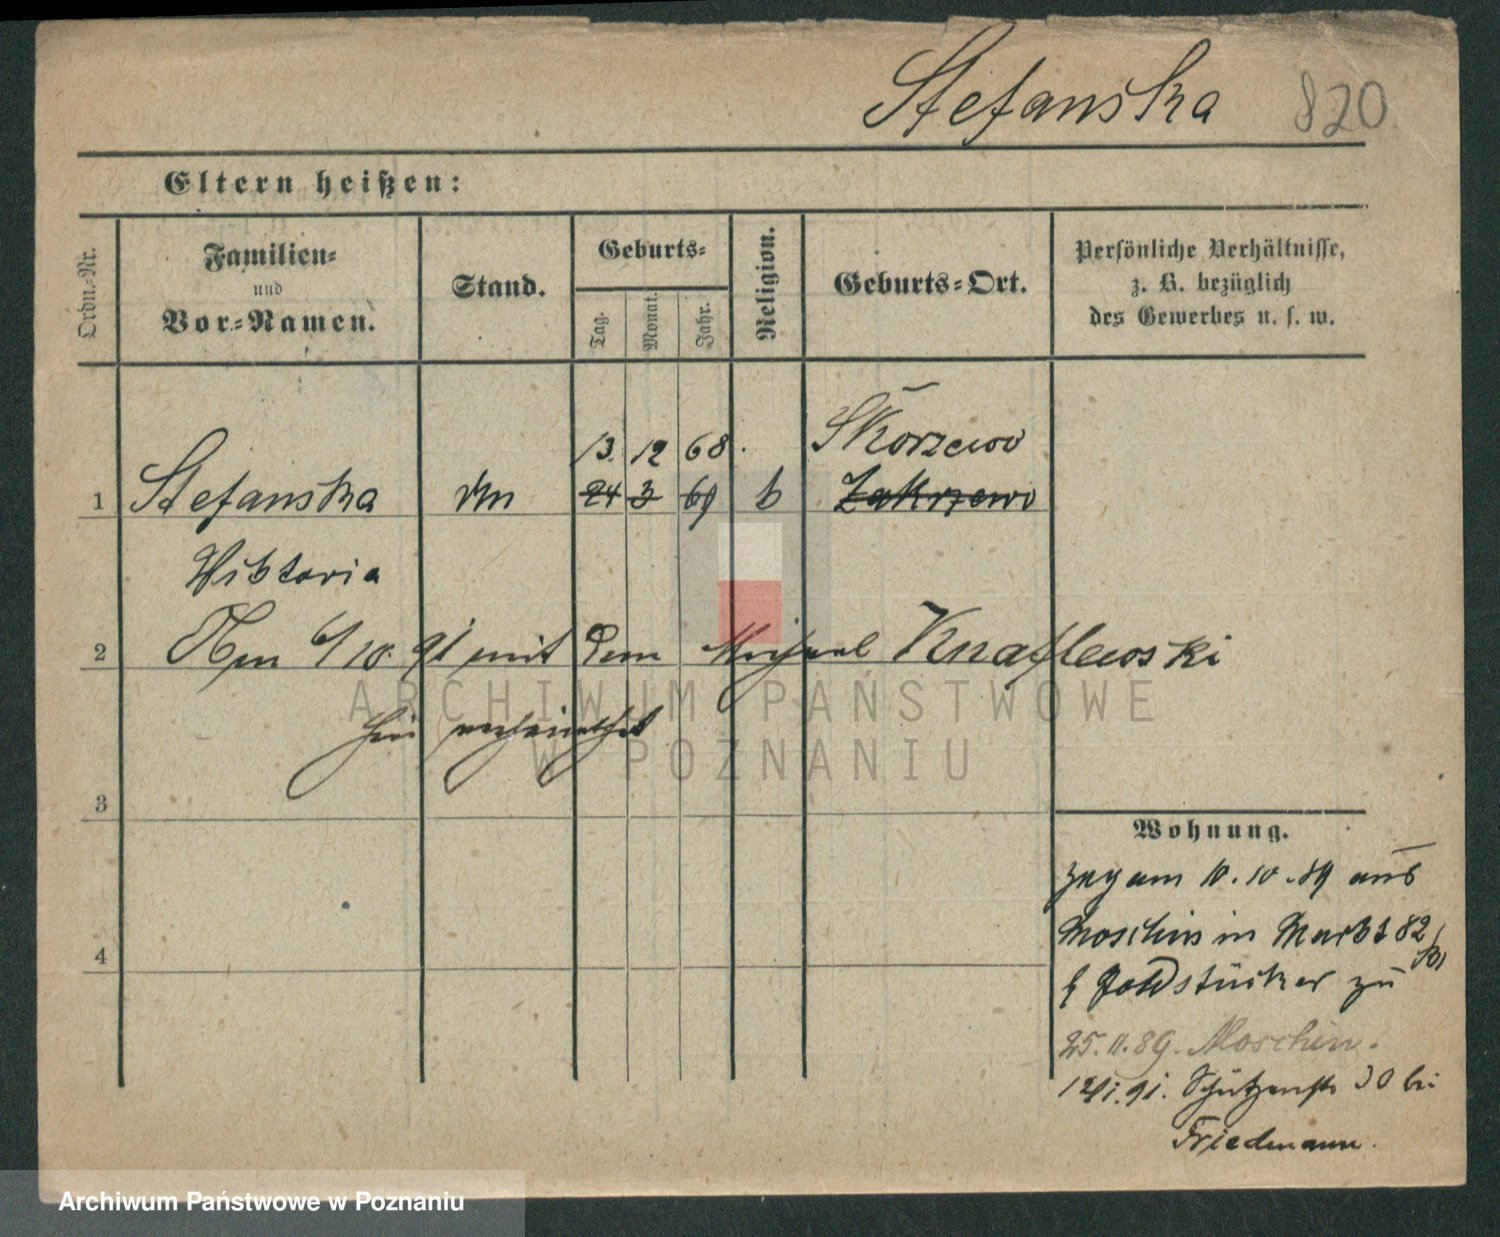 Stefanska 820
Eltern heißen:
Ordn.-Nr.
Familien-
und
Vor-Namen.
Stand.
Geburts-
Tag.
Monat.
Jahr.
Religion.
Geburts-Ort.
Persönliche Verhältnisse,
z. B. bezüglich
des Gewerbes u. s. w.
13. 12 68. Skorzewo
1 Stefanska 24 3 69 Zakrzewo
Wiktoria
2 Am 6/10. 91 mit dem Michael Knaflewski
hier verheirathet
3
4
Wohnung.
zog am 10.10.89 aus
Moschin in Markt 82
Goldstücker zu
25.11.89. Moschin.
Schützenstr 30 bei
Friedmann.
ARCHIWUM PAŃSTWOWE
W POZNANIU
Archiwum Państwowe w Poznaniu